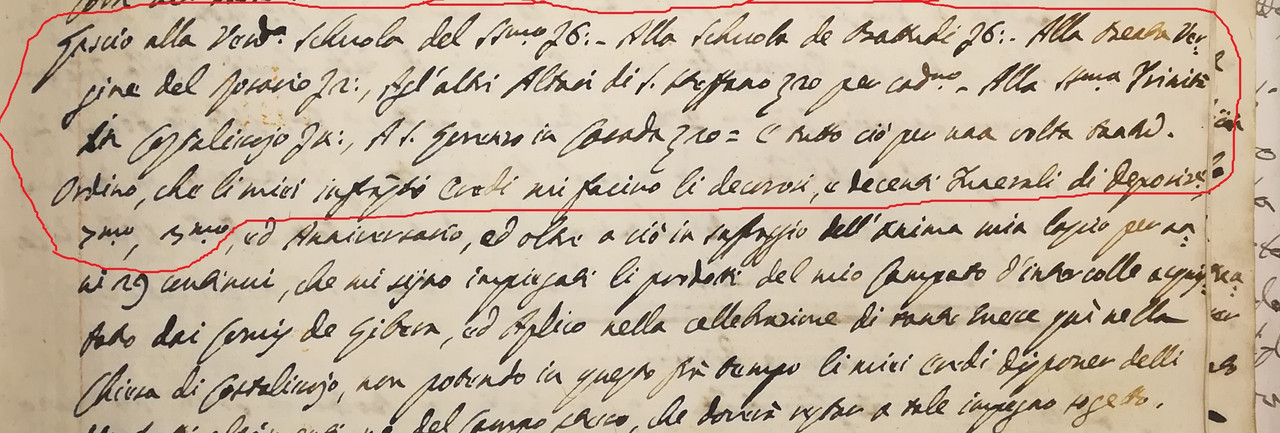 Lascio alla Vend.a schuola del SS.mo 76:- Alla schuola de Battudi 76:- Alla Beata Ver-
gine del Rosario 72:, Agl'altri Altari di S. Steffano 720 per cad.no - Alla SS.ma Trinità
in Costalissojo 74:, A S. Lorenzo in Casada 720 = E tutto ciò per una volta tanto.
Ordino, che li miei infrãtti Eredi mi facino li decorosi, e decenti Funerali di deposiz.e
7.mo, 3.mo, ed Anniversario, ed oltre a ciò in suffragio dell'anima mia lascio per an-
ni 29 continui, che mi sijno impiegati li prodotti del mio Campato d'intercolle acquis-
tato dai de Gibera, ed Aplico nella cellebrazione di tante Messe quì nella
Chiesa di Costalissojo, non potendo in questo frà tempo li miei Eredi disponer delli
del Campo che dovrà restar a tale impegno sogetto.